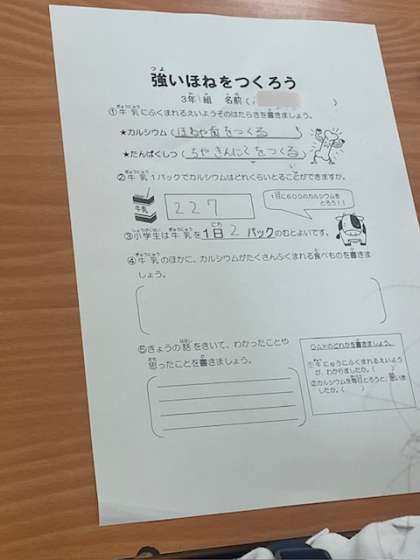 強いほねをつくろう
3年1組 名前( )
①牛乳にふくまれるえいようそのはたらきを書きましょう。
★カルシウム(ほねや歯をつくる)
★たんぱくしつ(ちやきんにくをつくる)
②牛乳1パックでカルシウムはどれくらいとることができますか。
牛乳
227
1日に600のカルシウムを
とろう!!
③小学生は牛乳を1日2パックのむとよいです。
④牛乳のほかに、カルシウムがたくさんふくまれる食べものを書きま
しょう。
⑤きょうの話をきいて、わかったことや
思ったことを書きましょう。
○△×のどれかを書きましょう。
①牛にゅうにふくまれるえいよう
が、わかりましたか。( )
②カルシウムを毎日とろうと、思いま
したか。( )